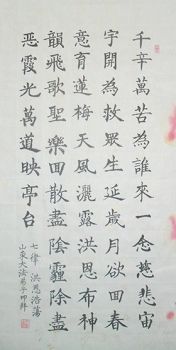 千辛萬苦為誰來一念慈悲宙
宇開為救眾生延歲月欲回春
意育蓮梅天風灑露洪恩布神
韻飛歌聖樂回散盡陰霾除盡
惡霞光萬道映亭台
七律 洪恩浩蕩
山東大法弟子叩拜